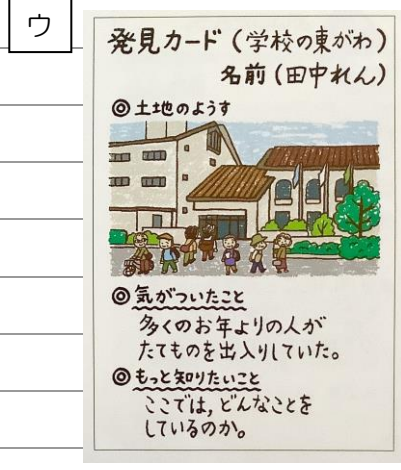 ウ
発見カード（学校の東がわ）
名前（田中れん）
◎土地のようす
◎気がついたこと
多くのお年よりの人が
たてものを出入りしていた。
◎もっと知りたいこと
ここでは，どんなことを
しているのか。